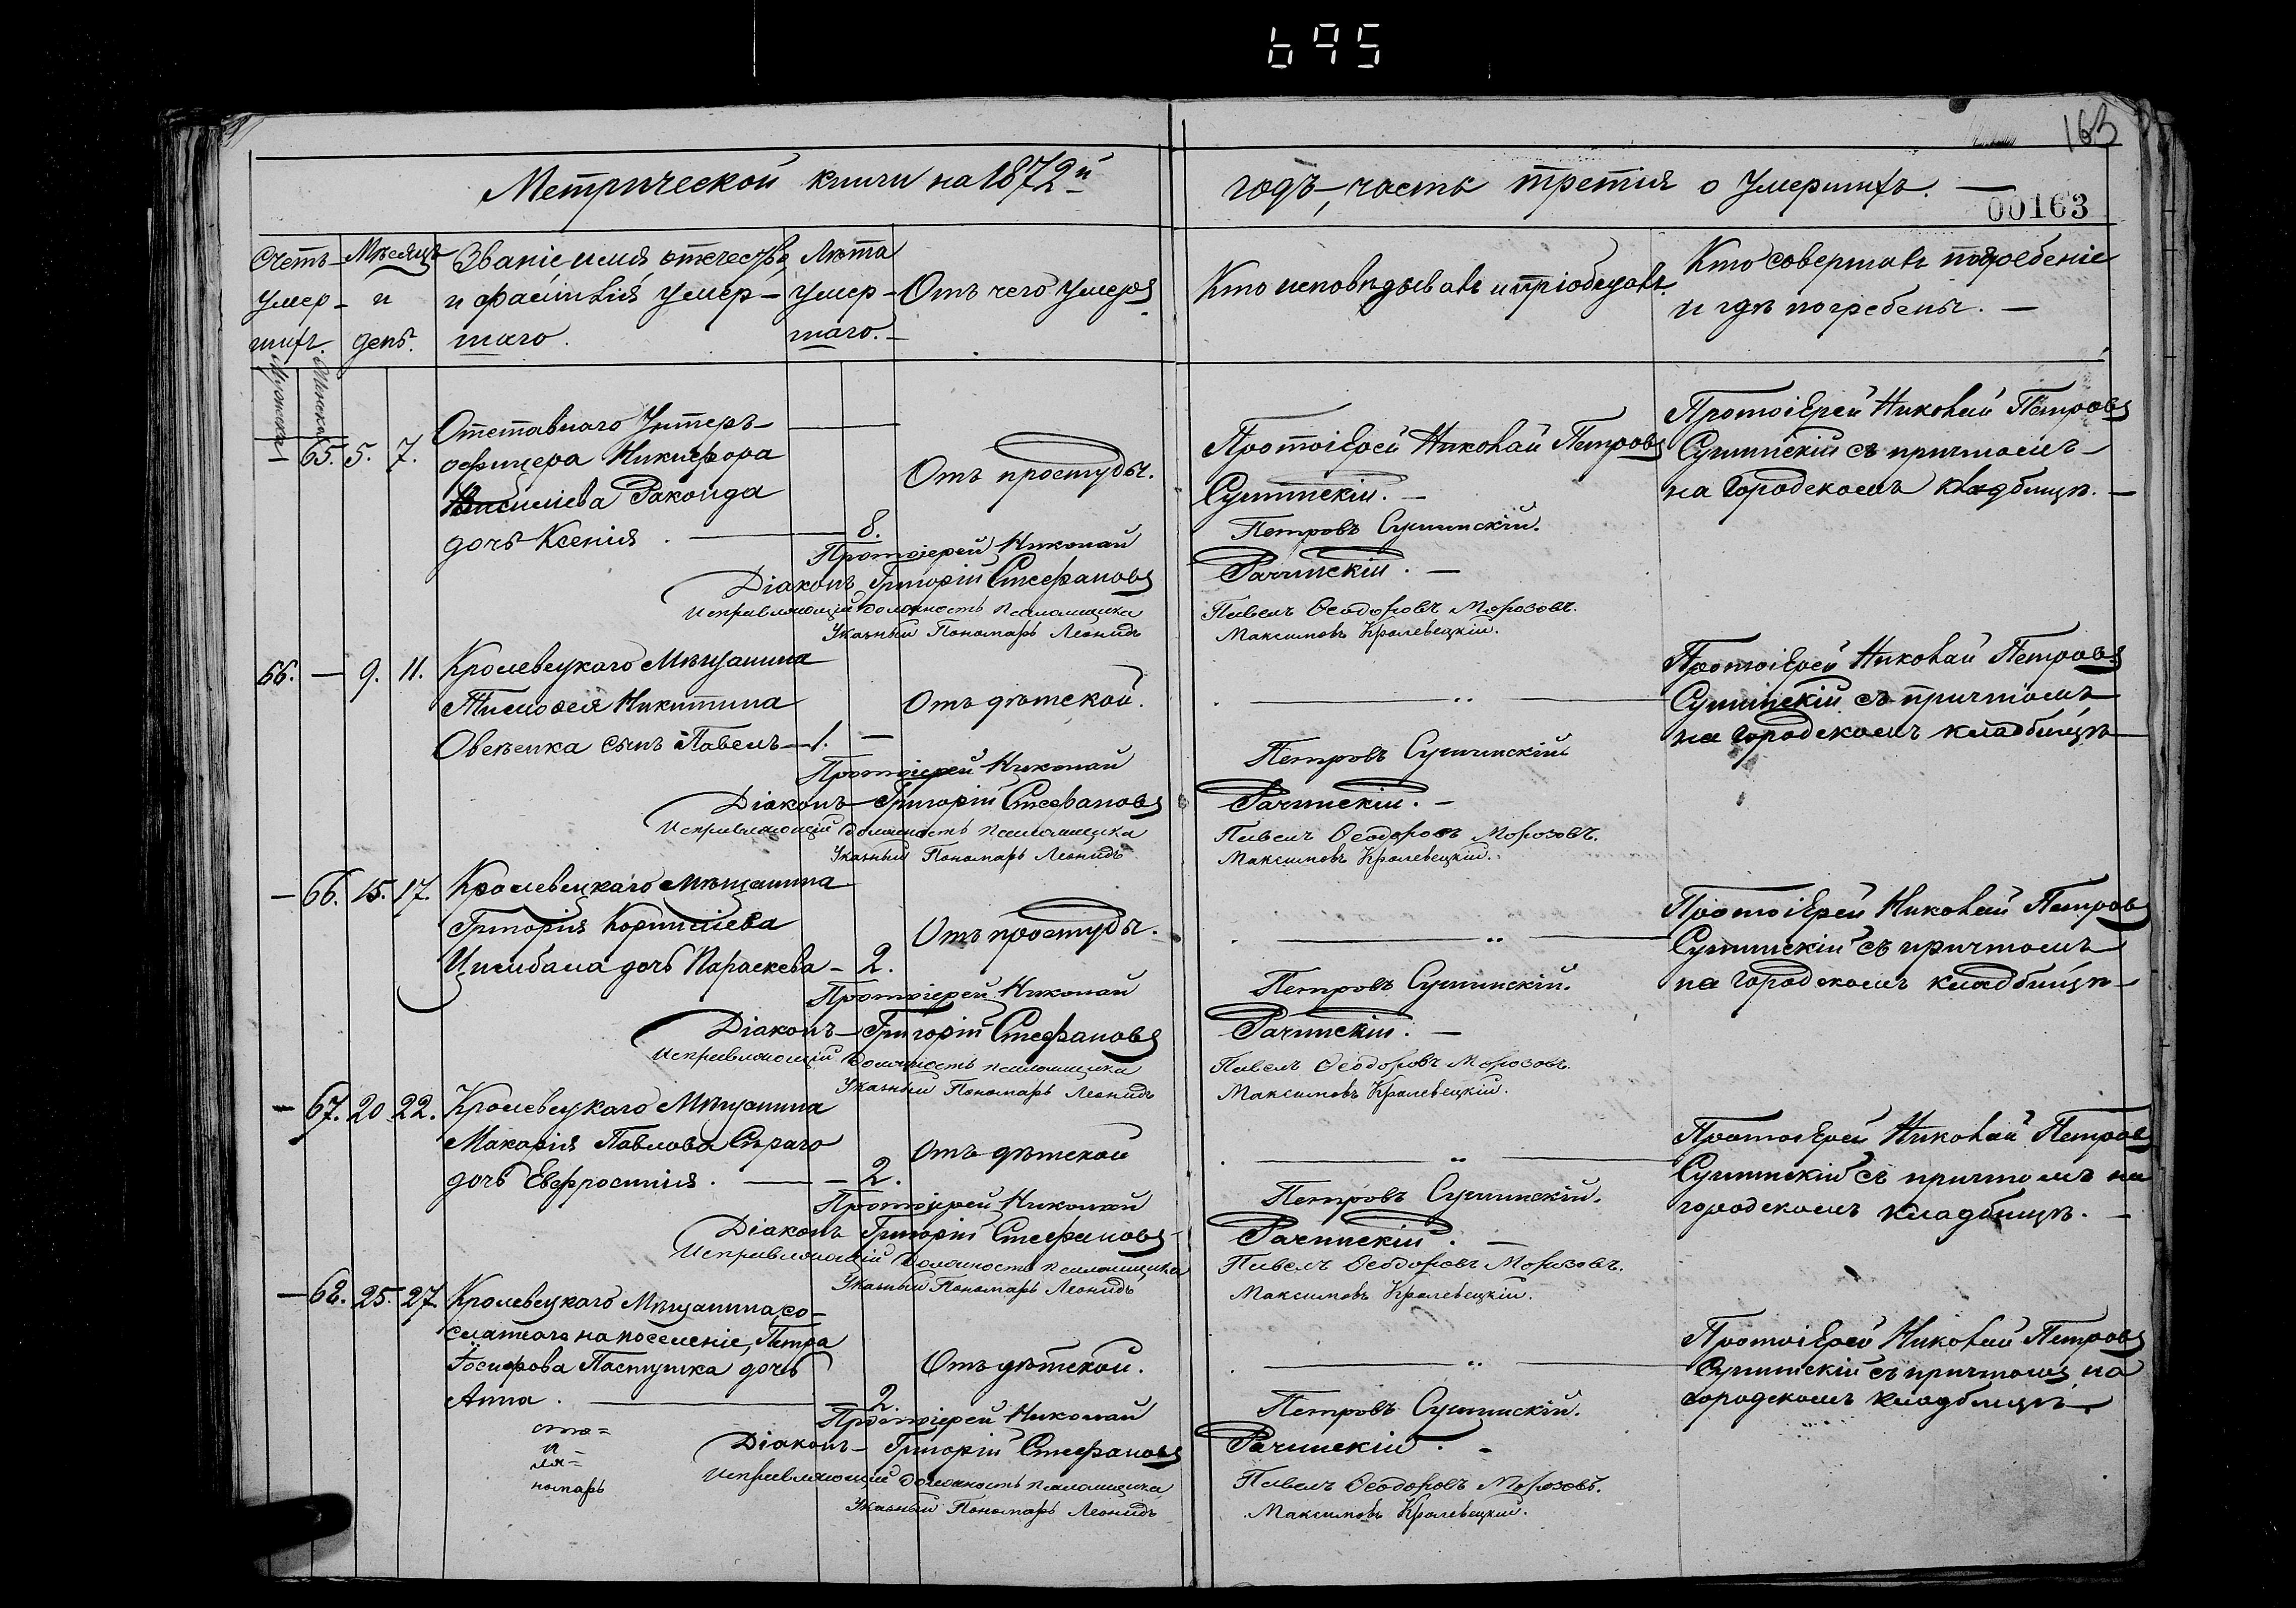 695
163
Метрической книги на 1872й
годъ, часть третія о умершихъ. —
00163
Счетъ умер- шихъ.
Мужска
Женска
Мѣсяцъ и день.
Званіе имя, отчество,
и фамилія умер-
шаго.
Лѣта
умер-
шаго.
Отъ чего умеръ
Кто исповѣдывалъ и пріобщалъ.
Кто совершалъ погребеніе
и гдѣ погребены. —
— 65. 5. 7.
Отставнаго Унтеръ-
офицера Никифора
Васильева Ракоида
дочь Ксенія. — 8.
Отъ простуды.
Протоіерей Николай Петровъ
Сушинскій. —
Протоіерей Николай Петровъ
Сушинскій съ причтомъ
на Городскомъ кладбищѣ. —
Протоіерей Николай Петровъ Сушинскій.
Діаконъ Григорій Стефановъ Рачинскій. —
Исправляющій должность псаломщика Павелъ Ѳеодоровъ Морозовъ.
Указный Пономарь Леонидъ Максимовъ Кролевецкій.
66. — 9. 11.
Кролевецкаго Мѣщанина
Тимоѳея Никитина
сынъ Павелъ — 1. —
Отъ дѣтской.
Протоіерей Николай Петровъ
Сушинскій съ причтомъ
на городскомъ кладбищѣ
Протоіерей Николай Петровъ Сушинскій
Діаконъ Григорій Стефановъ Рачинскій. —
Исправляющій должность псаломщика Павелъ Ѳеодоровъ Морозовъ.
Указный Пономарь Леонидъ Максимовъ Кролевецкій.
— 66. 15. 17.
Кролевецкаго мѣщанина
Григорія Корнилієва
Цимбала дочь Параскева — 2.
Отъ простуды.
Протоіерей Николай Петровъ
Сушинскій съ причтомъ
на городскомъ кладбищѣ —
Протоіерей Николай Петровъ Сушинскій.
Діаконъ — Григорій Стефановъ Рачинскій. —
Исправляющій должность псаломщика Павелъ Ѳеодоровъ Морозовъ.
Указный Пономарь Леонидъ Максимовъ Кролевецкій.
— 67. 20 22.
Кролевецкаго Мѣщанина
Макарія Павлова Сѣраго
дочь Евфросинія. — 2.
Отъ дѣтской
Протоіерей Николай Петровъ
Сушинскій съ причтомъ на
городскомъ кладбищѣ. —
Протоіерей Николай Петровъ Сушинскій.
Діаконъ Григорій Стефановъ Рачинскій. —
Исправляющій должность псаломщика Павелъ Ѳеодоровъ Морозовъ.
Указный Пономарь Леонидъ Максимовъ Кролевецкій.
— 68. 25. 27.
Кролевецкаго Мѣщанина со-
сланнаго на поселеніе, Петра
Іосифова Пастушка дочь
Анна. — 2.
Отъ дѣтской.
Протоіерей Николай Петровъ
Сушинскій съ причтомъ на
городскомъ кладбищѣ.
Протоіерей Николай Петровъ Сушинскій.
Діаконъ — Григорій Стефановъ Рачинскій. —
Исправляющій должность псаломщика Павелъ Ѳеодоровъ Морозовъ.
Указный Пономарь Леонидъ Максимовъ Кролевецкій.
номарь